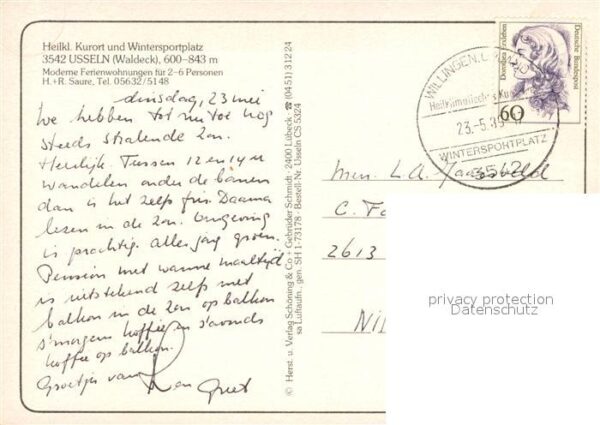 Heilkl. Kurort und Wintersportplatz
3542 USSELN (Waldeck), 600–843 m
Moderne Ferienwohnungen für 2–6 Personen
H.+R. Saure, Tel. 05632/5148
dinsdag, 23 mei
We hebben tot nu toe nog
steeds stralende zon.
Heerlijk. Tussen 12 en 14 u
wandelen onder de bomen
dan is het zelfs fris. Daarna
lezen in de zon. Omgeving
is prachtig. Alles jong groen.
Pension met warme maaltijd
is uitstekend zelfs met
balkon in de zon op balkon
s'morgens koffie en s'avonds
koffie op balkon.
Groetjes van
Greet
© Herst. u. Verlag Schöning & Co + Gebrüder Schmidt · 2400 Lübeck · ☎ (04 51) 3 12 24
sa Luftaufn., gen. SH 1-73178 · Bestell-Nr. Usseln CS 5324
WILLINGEN
Heilklimatischer Kurort
23.-5.89
WINTERSPORTPLATZ
3542
60
Dorothea Erxleben
Deutsche Bundespost
L.A.
C.
2613
privacy protection
Datenschutz